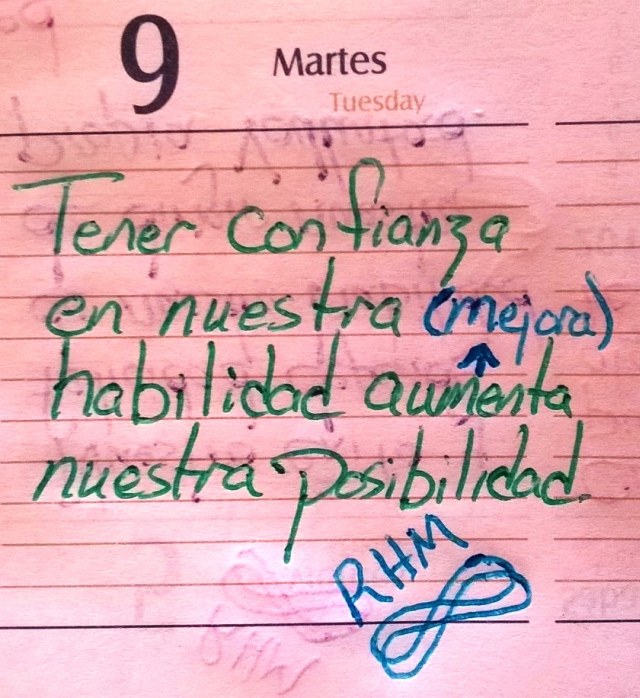 9 Martes
Tuesday
Tener confianza
en nuestra (mejora)
habilidad aumenta
nuestra posibilidad.
RHM